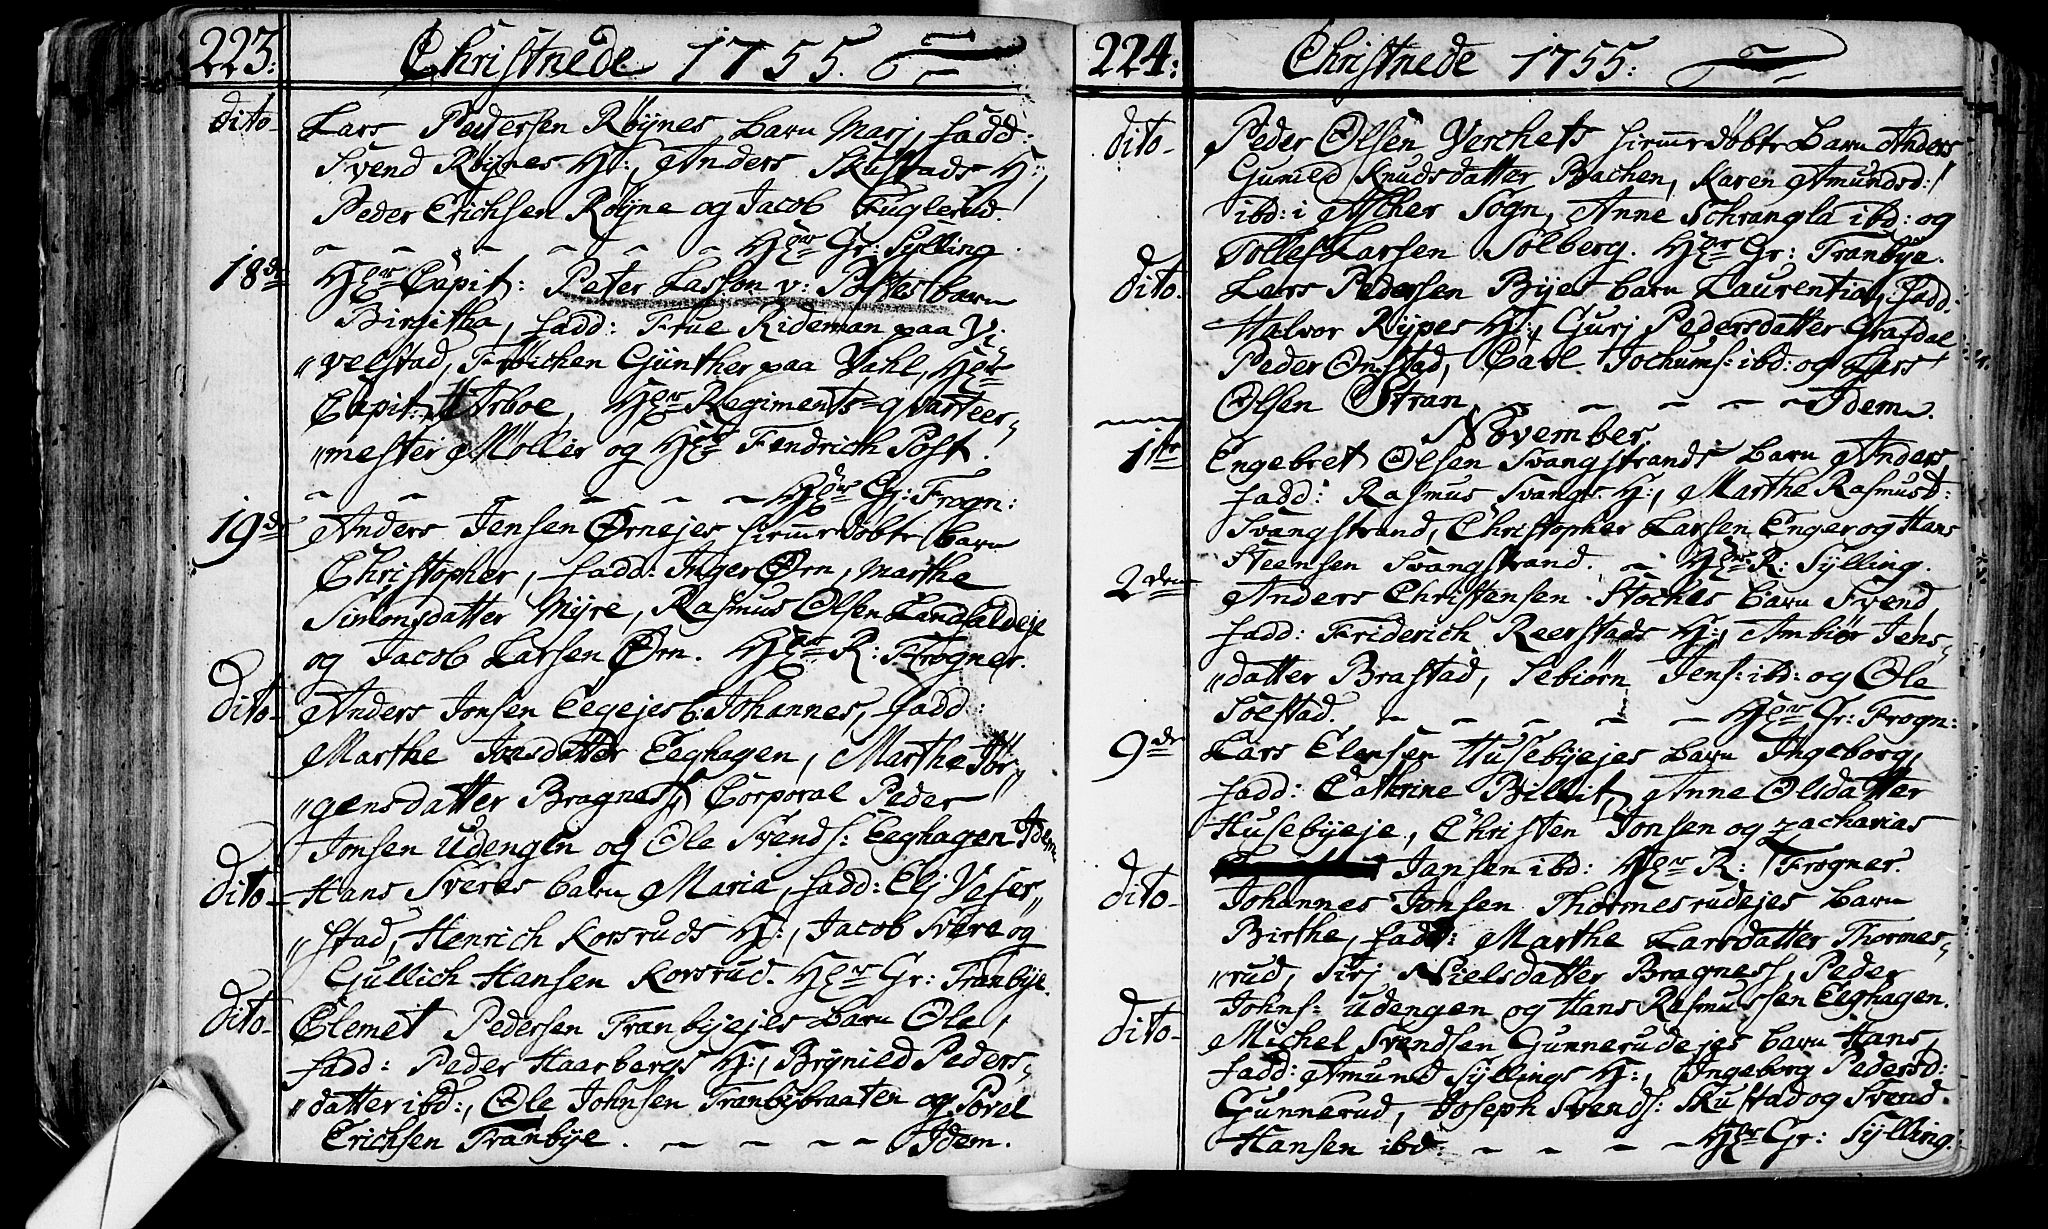 223. Christnede 1755.
dito- Lars Pedersen Röÿnes barn Marj, fadd:
Svend Röÿnes H:, Anders Skustads H:,
Peder Erichsen Röÿne og Jacob Fuglerud.
Hr Gr: Sylling.
18de Hr Capit: Peter v: Postes barn
Birgitha, fadd: Frue Rideman paa Y,
"velstad, Fröichen Günther paa Vahl, Hr
Capit: Arboe, Hr Regiments=qvarteer,,
"mester Möller og Hr Fendrich Post.
Hr Gr: Frogn:
19de Anders Jensen Ørnejes hiemedöbte barn
Christopher, fadd: Inger Ørn, Marthe
Simonsdatter Mÿre, Rasmus Olsen
og Jacob Larsen Ørn. Hr R: Frogner.
Dito- Anders Jonsen Eegejes b: Johannes, fadd:
Marthe Jonsdatter Eeghagen, Marthe Jör,,
"gensdatter Bragness, Corporal Peder
Jonsen Udengen og Ole Svends: Eeghagen Idem
dito- Hans Sveres barn Maria, fadd: Elj Veser,,
"stad, Henrich Korsruds H:, Jacob Svere og
Gullich Hansen Korsrud. Hr Gr: Tranbÿe.
dito- Clemet Pedersen Tranbÿejes barn Ole,
fadd: Peder Haarbergs H:, Brÿnild Peders,,
"datter ibd:, Ole Johnsen Tranbÿbraaten og Povel
Erichsen Tranbÿe. Idem.
224: Christnede 1755:
dito- Peder Olsen hiemedöbte barn Anders
Gunild Knudsdatter Bachen, Karen Amundsd:
ibd: i Ascher Sogn, Anne Schrangla ibd: og
Tollef Larsen Solberg. Hr Gr: Tranbÿe.
dito. Lars Pedersen Bÿes barn Laurentia, fadd:
Halvor Rÿpes H:, Gurj Pedersdatter Grafdal
Peder Onstad, Carl Jochums: ibd: og Lars
Olsen Stran. Idem.
November
1te Engebret Olsen Svangstrands barn Anders,
fadd: Rasmus Svangs: H:, Marthe Rasmusd:
Svangstrand, Christopher Larsen Enger og Hans
Steensen Svangstrand. Hr R: Sÿlling.
2den Anders Christensen Stoches barn Svend,
fadd: Friderich Reerstads H:, Ambiør Jens,,
"datter Brastad, Sebiörn Jens: ibd: og Ole
Solstad. Hr Gr: Frogn:
9de Lars Elensen Husebÿejes barn Ingeborg,
fadd: Cathrine Billit, Anne Olsdatter
Husebÿeje, Christen Jonsen og Zacharias
Jansen ibd: Hr R: Frogner.
dito- Johannes Jonsen Thormesrudejes barn
Birthe, fadd: Marthe Larsdatter Thormes,,
"rud, Sirj Nielsdatter Bragness, Peder
Johns: Udengen og Hans Rasmussen Eeghagen.
dito- Michel Svendsen Gunnerudejes barn Hans,
fadd: Amund Sÿllings H:, Ingeborg Pedersd:
Gunnerud, Joseph Svends: Skustad og Svend
Hansen ibd: Hr Gr: Sÿlling: